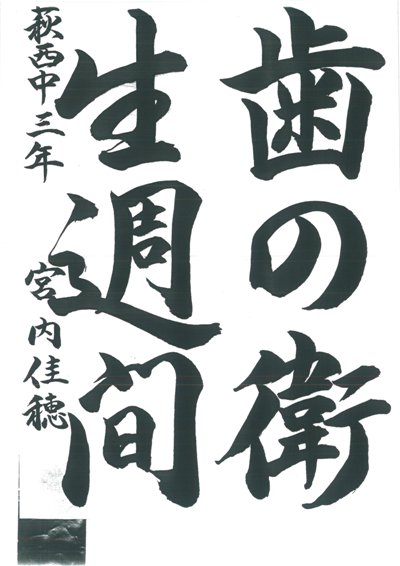 歯の衛
生週間
萩西中三年
宮内佳穂